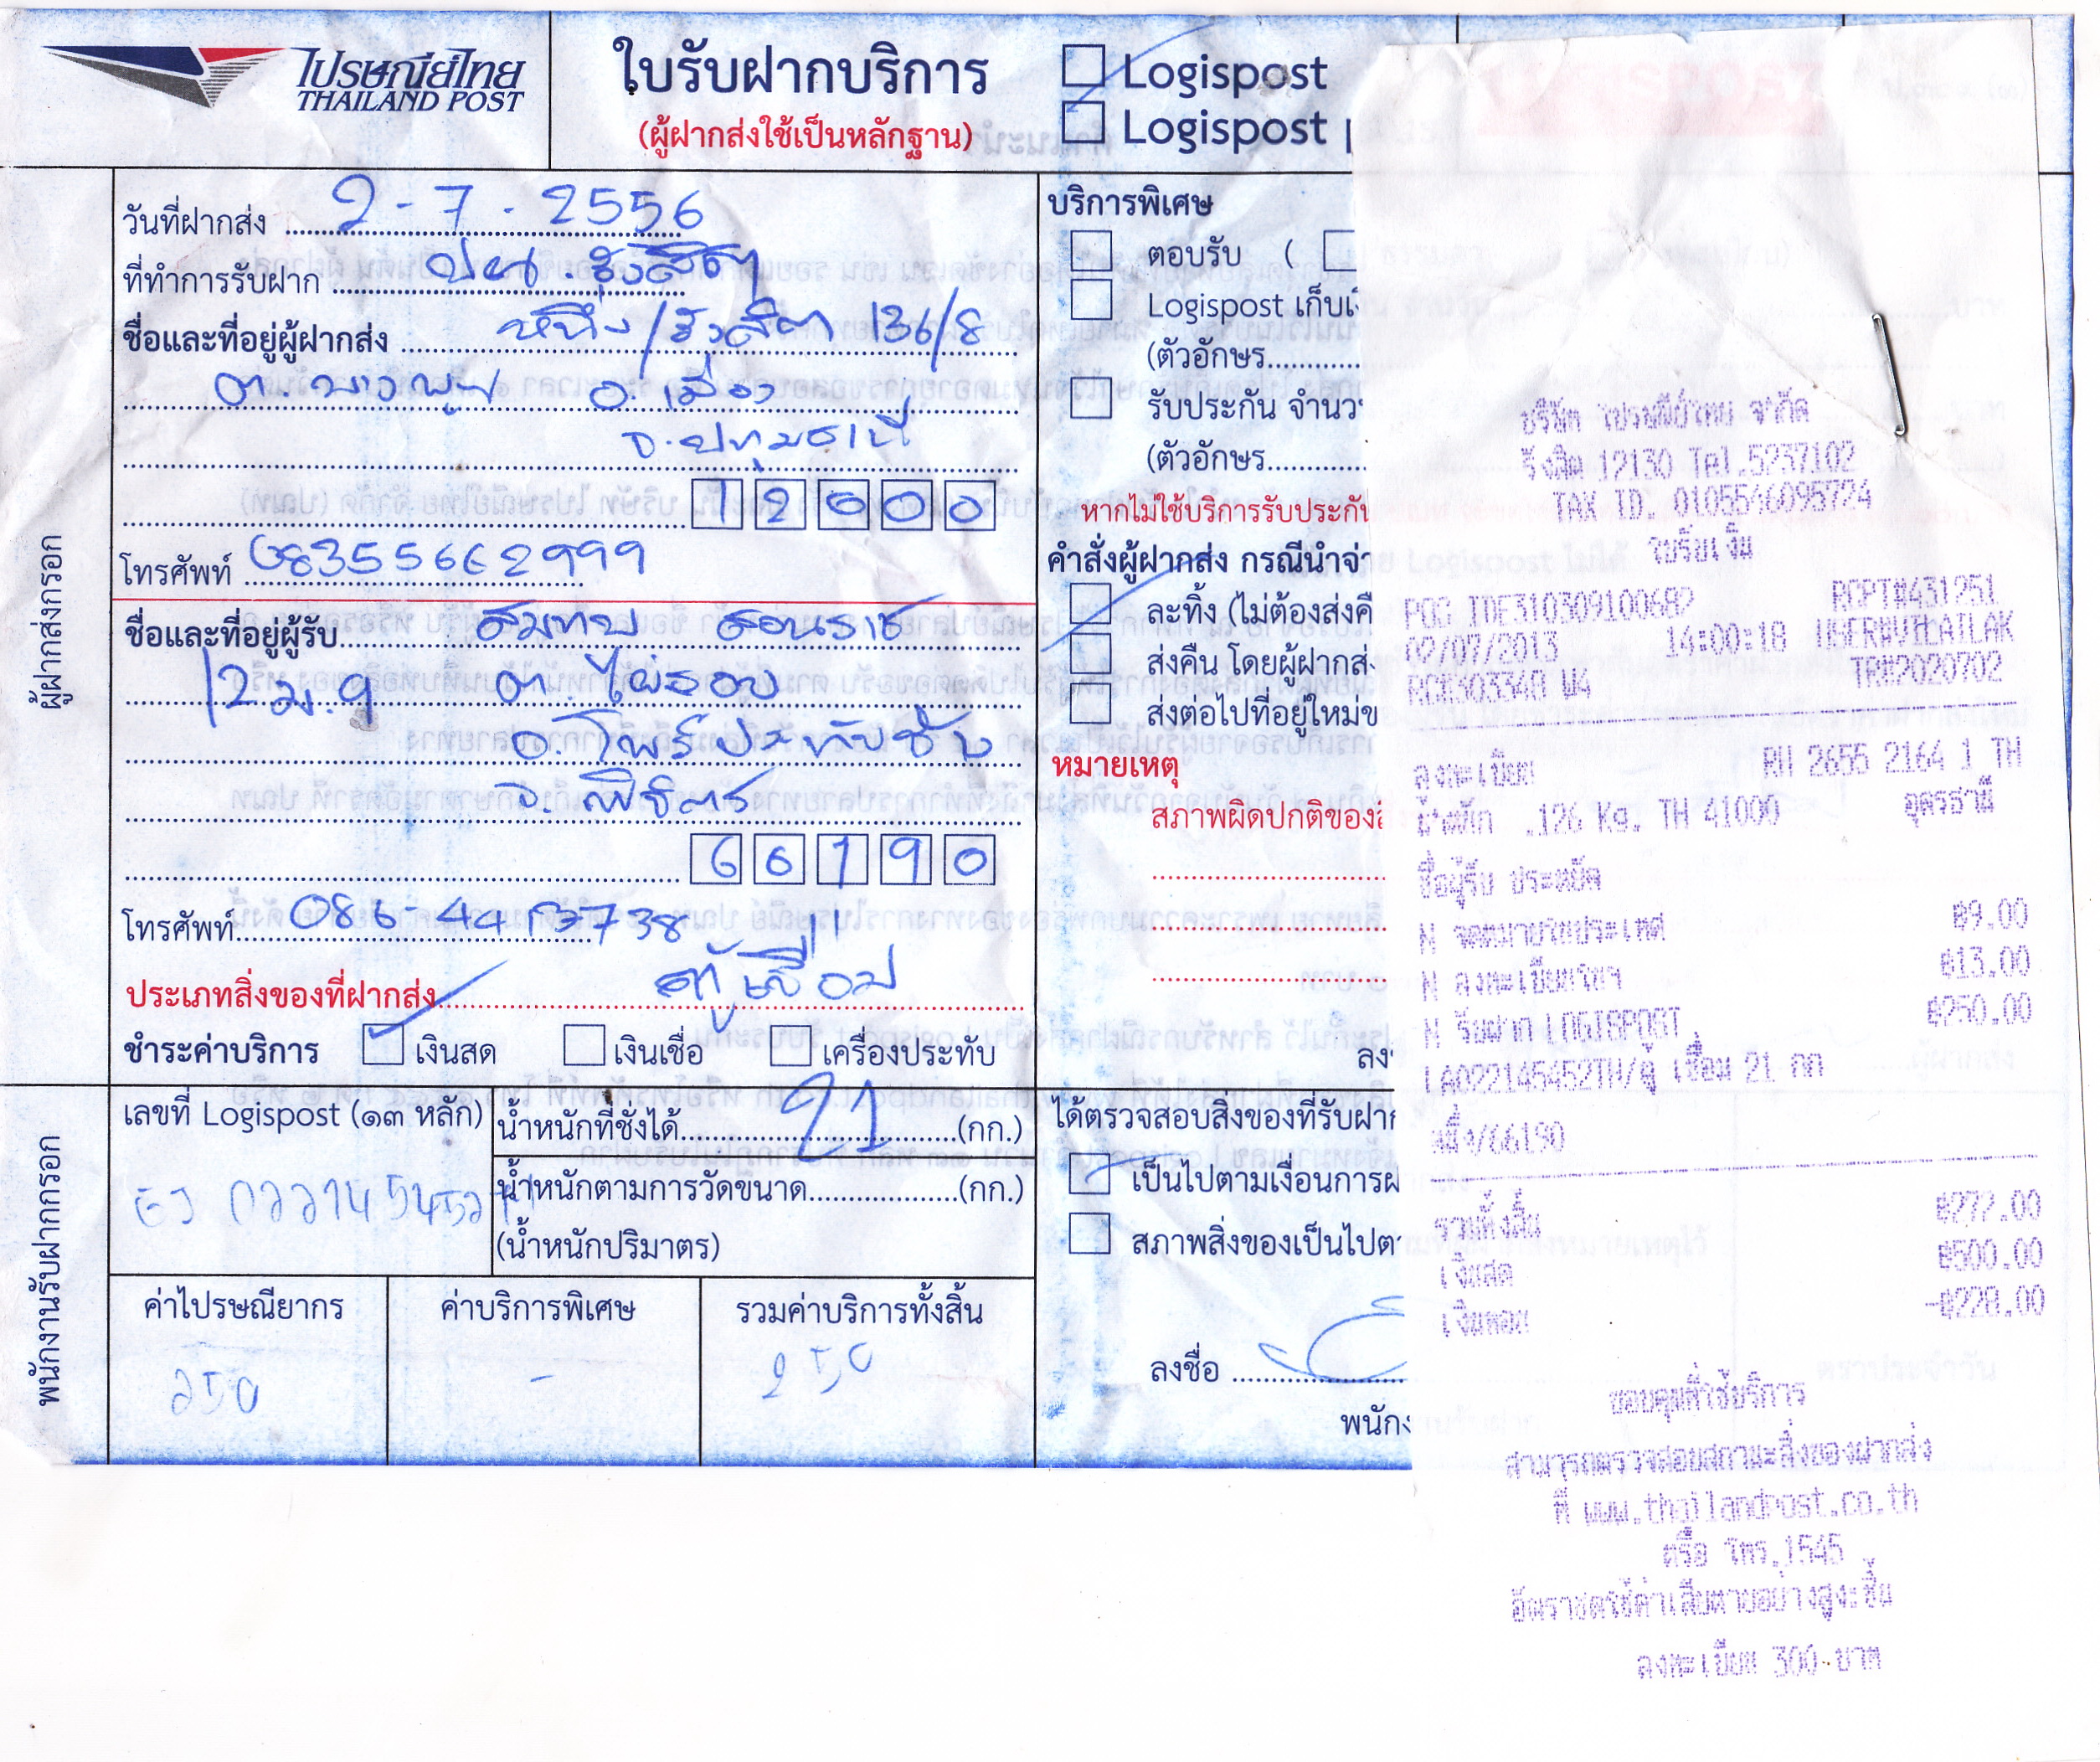 ไปรษณีย์ไทย
THAILAND POST
ใบรับฝากบริการ
(ผู้ฝากส่งใช้เป็นหลักฐาน)
Logispost
Logispost
ผู้ฝากส่งกรอก
วันที่ฝากส่ง 2-7-2556
ที่ทำการรับฝาก ปณ.รังสิต
ชื่อและที่อยู่ผู้ฝากส่ง หนึ่ง/รังสิต 136/8
ต. บางพูน อ. เมือง
จ.ปทุมธานี
12000
โทรศัพท์ 08355662999
ชื่อและที่อยู่ผู้รับ สมทบ สอนราช
12 ม.9 ต. ไผ่รอบ
อ. โพธิ์ประทับช้าง
จ. พิจิตร
66190
โทรศัพท์ 086-
ประเภทสิ่งของที่ฝากส่ง ตู้เชื่อม
ชำระค่าบริการ เงินสด เงินเชื่อ เครื่องประทับ
พนักงานรับฝากกรอก
เลขที่ Logispost (๑๓ หลัก)
น้ำหนักที่ชั่งได้ 21 (กก.)
น้ำหนักตามการวัดขนาด (กก.)
(น้ำหนักปริมาตร)
ค่าไปรษณียากร ค่าบริการพิเศษ รวมค่าบริการทั้งสิ้น
250 - 250
บริการพิเศษ
ตอบรับ (
Logispost เก็บเ
(ตัวอักษร
รับประกัน จำนว
(ตัวอักษร
หากไม่ใช้บริการรับประกัน
คำสั่งผู้ฝากส่ง กรณีนำจ่า
ละทิ้ง (ไม่ต้องส่งคื
ส่งคืน โดยผู้ฝากส่ง
ส่งต่อไปที่อยู่ใหม่ข
หมายเหตุ
สภาพผิดปกติของสิ
ลง
ได้ตรวจสอบสิ่งของที่รับฝาก
เป็นไปตามเงื่อนการฝ
สภาพสิ่งของเป็นไปต
ลงชื่อ
พนักง
บริษัท ไปรษณีย์ไทย จำกัด
รังสิต 12130 Tel.5237102
TAX ID. 0105546095724
ใบรับเงิน
POS IDE310309100682 RCPT#431251
02/07/2013 14:00:18 USER#VILAILAK
TR#2020702
ลงทะเบียน RH 2655 2164 1 TH
น้ำหนัก .126 Kg. TH 41000 อุดรธานี
ชื่อผู้รับ ประหยัด
N จดหมายในประเทศ ฿9.00
N ลงทะเบียนในฯ ฿13.00
N รับฝาก LOGISPOST ฿250.00
LA022145452TH/ตู้ เชื่อม 21 กก
หนึ่ง/66190
รวมทั้งสิ้น ฿272.00
เงินสด ฿500.00
เงินทอน -฿228.00
ขอบคุณที่ใช้บริการ
สามารถตรวจสอบสถานะสิ่งของฝากส่ง
ที่ www.thailandpost.co.th
หรือ โทร.1545
อัตราชดใช้ค่าเสียหายอย่างสูงชิ้น
ลงทะเบียน 300 บาท